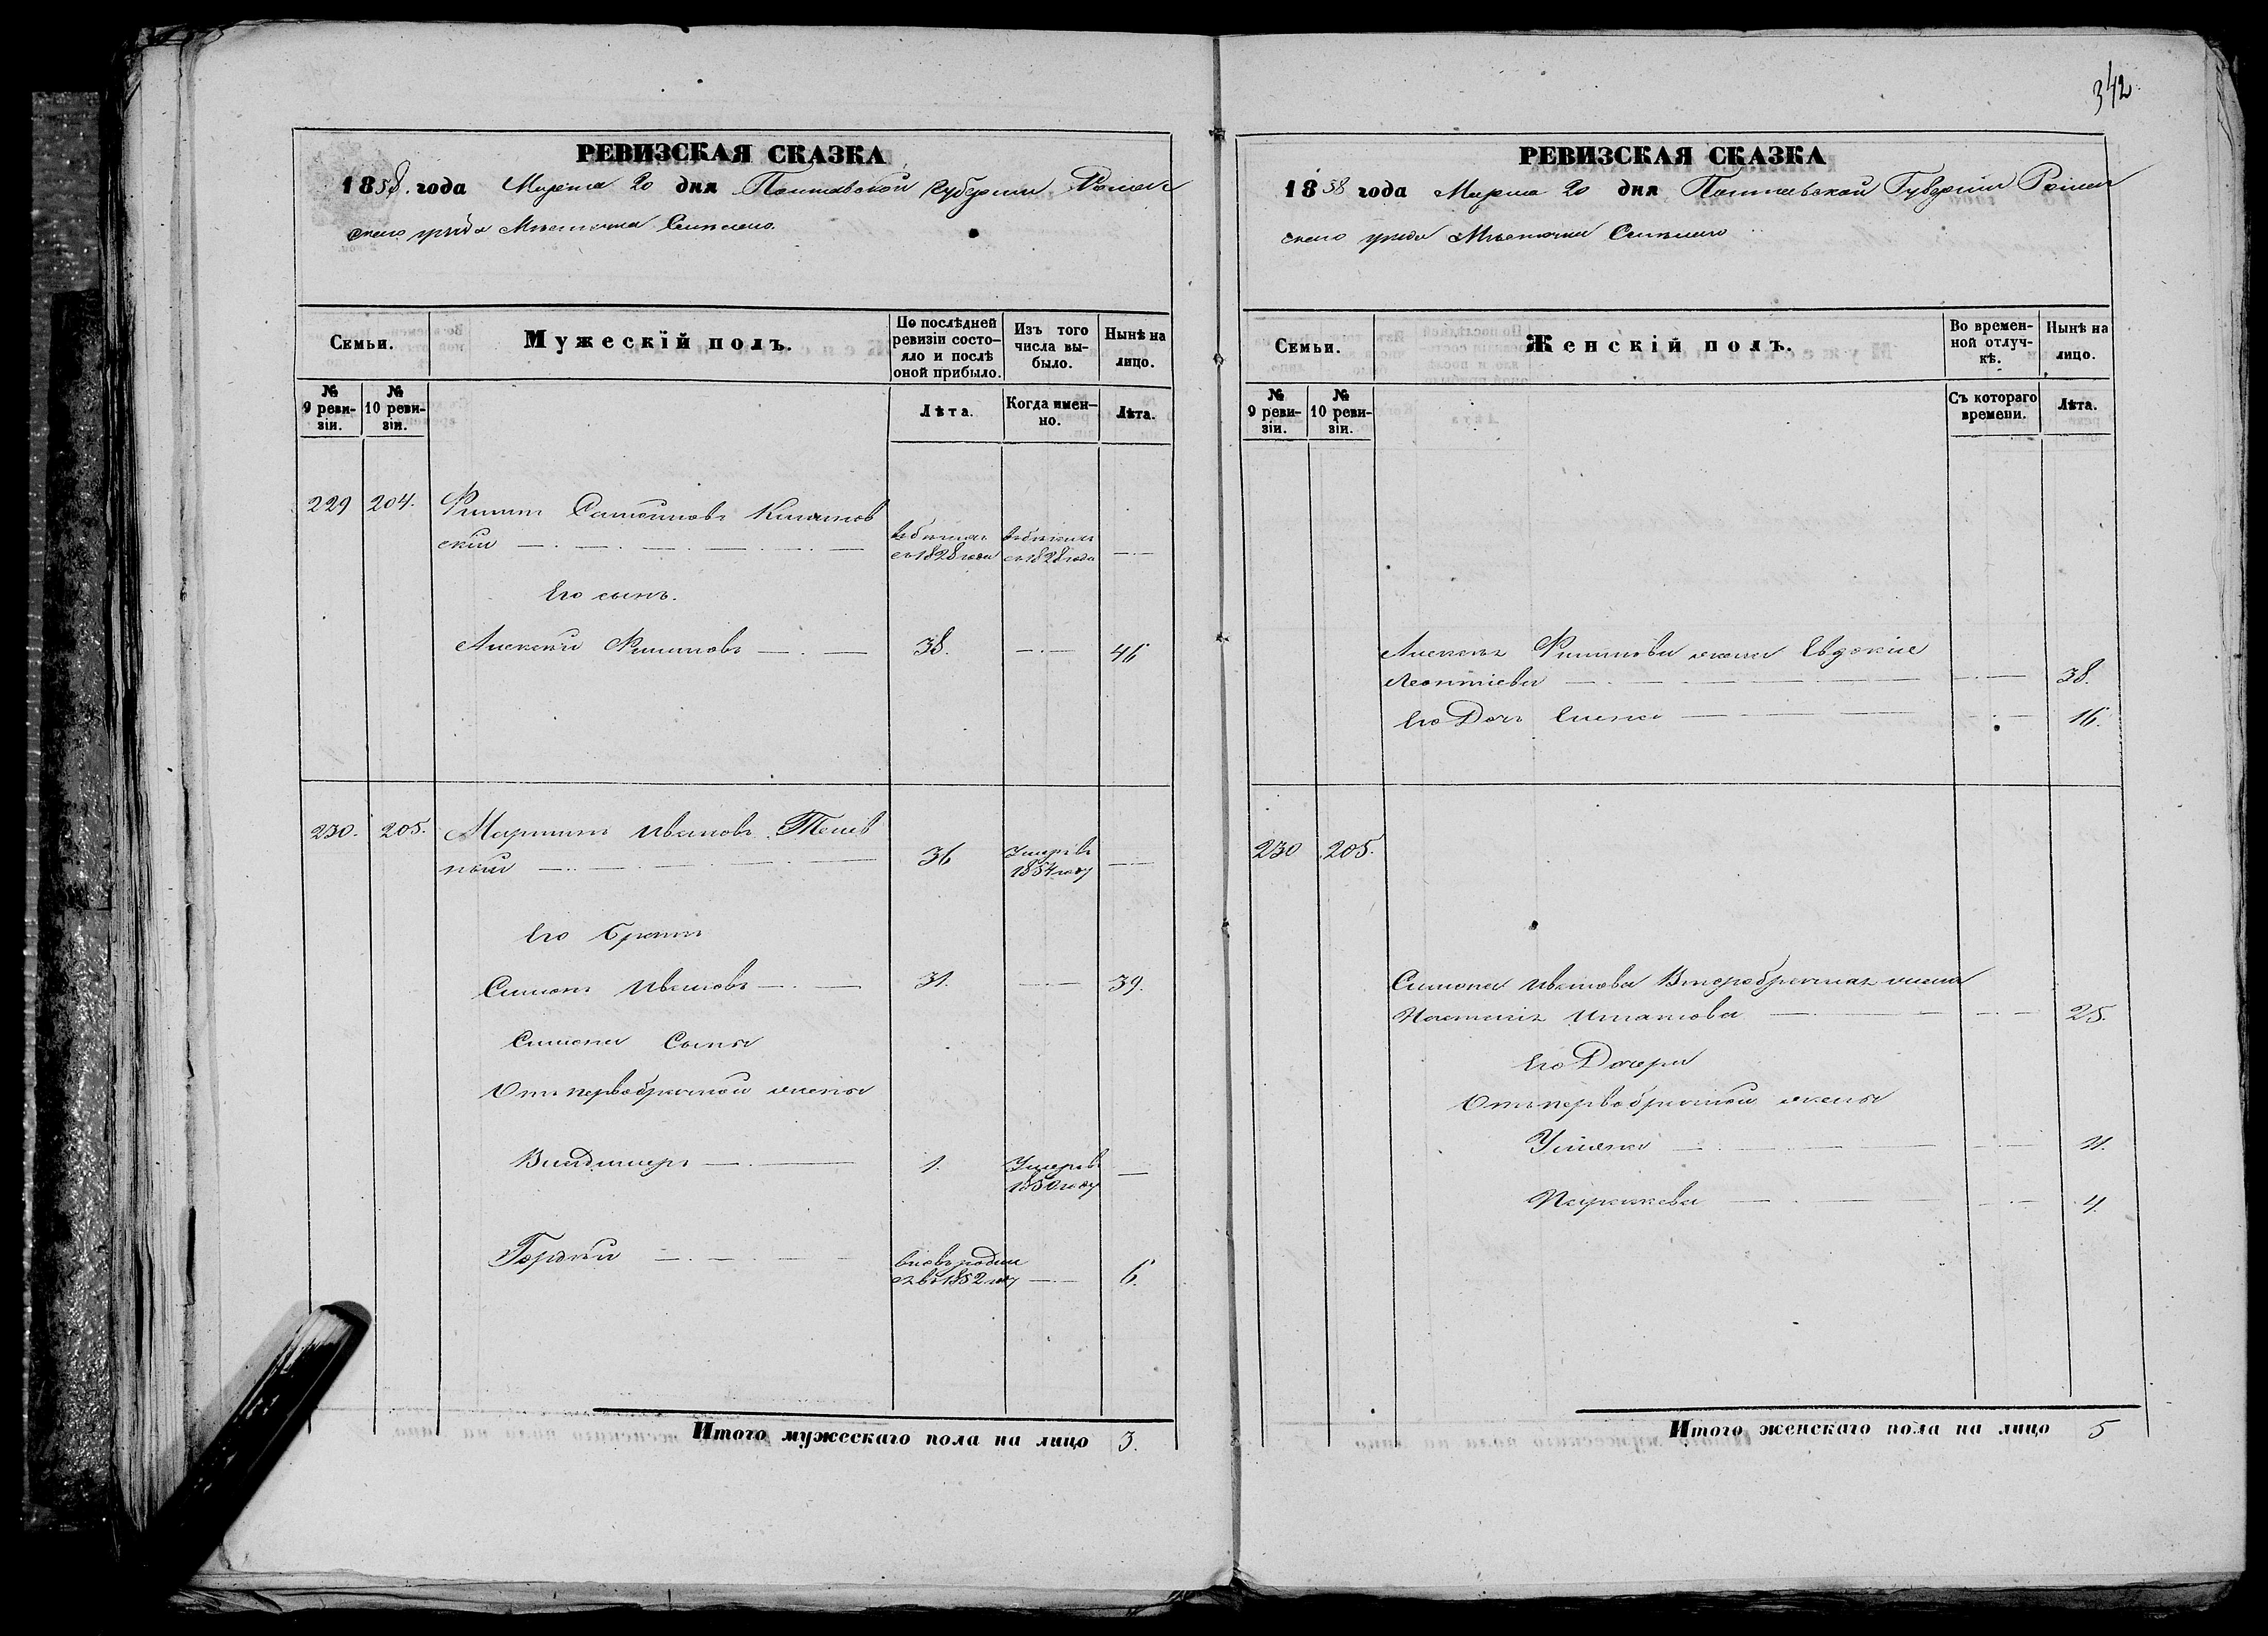 342
РЕВИЗСКАЯ СКАЗКА
1858. года Марта 20 дня Полтавской губерніи Ромен
скаго уѣзда Мѣстечка Смѣлаго.
Семьи.
Мужескій полъ.
По послѣдней ревизіи состояло и послѣ оной прибыло.
Изъ того числа выбыло.
Нынѣ на лицо.
№ 9 ревизіи.
№ 10 ревизіи.
Лѣта.
Когда именно.
Лѣта.
229 204. Филипъ Самойловъ
скій
въ бѣгахъ въ бѣгахъ
съ 1828 года съ 1828 года
Его сынъ.
Алексѣй Филиповъ 38. 46
230. 205. Мартинъ Ивановъ
ной 36 Умеръ въ
1854 году
Его братъ
Симонъ Ивановъ 31. 39.
Симона Сыны
Отъ первобрачной жены
Владимеръ 1. Умеръ в
1850 году
Гордѣй вновь родил
ся въ 1852 году 6.
Итого мужескаго пола на лицо 3.
РЕВИЗСКАЯ СКАЗКА
1858 года Марта 20 дня Полтавской Губерніи Ромен
скаго уѣзда Мѣстечка Смѣлаго
Семьи.
Женскій полъ.
Во временной отлучкѣ.
Нынѣ на лицо.
№ 9 ревизіи.
№ 10 ревизіи.
Съ котораго времени.
Лѣта.
Алексѣя Филипова жена Евдокія
Леонтіева 38.
Его Дочь Елена 16.
230 205.
Симона Иванова Второбрачная жена
Настасія 25.
Его Дочери
Отъ первобрачной жены
Ульяна
Параскева
Итого женскаго пола на лицо 5